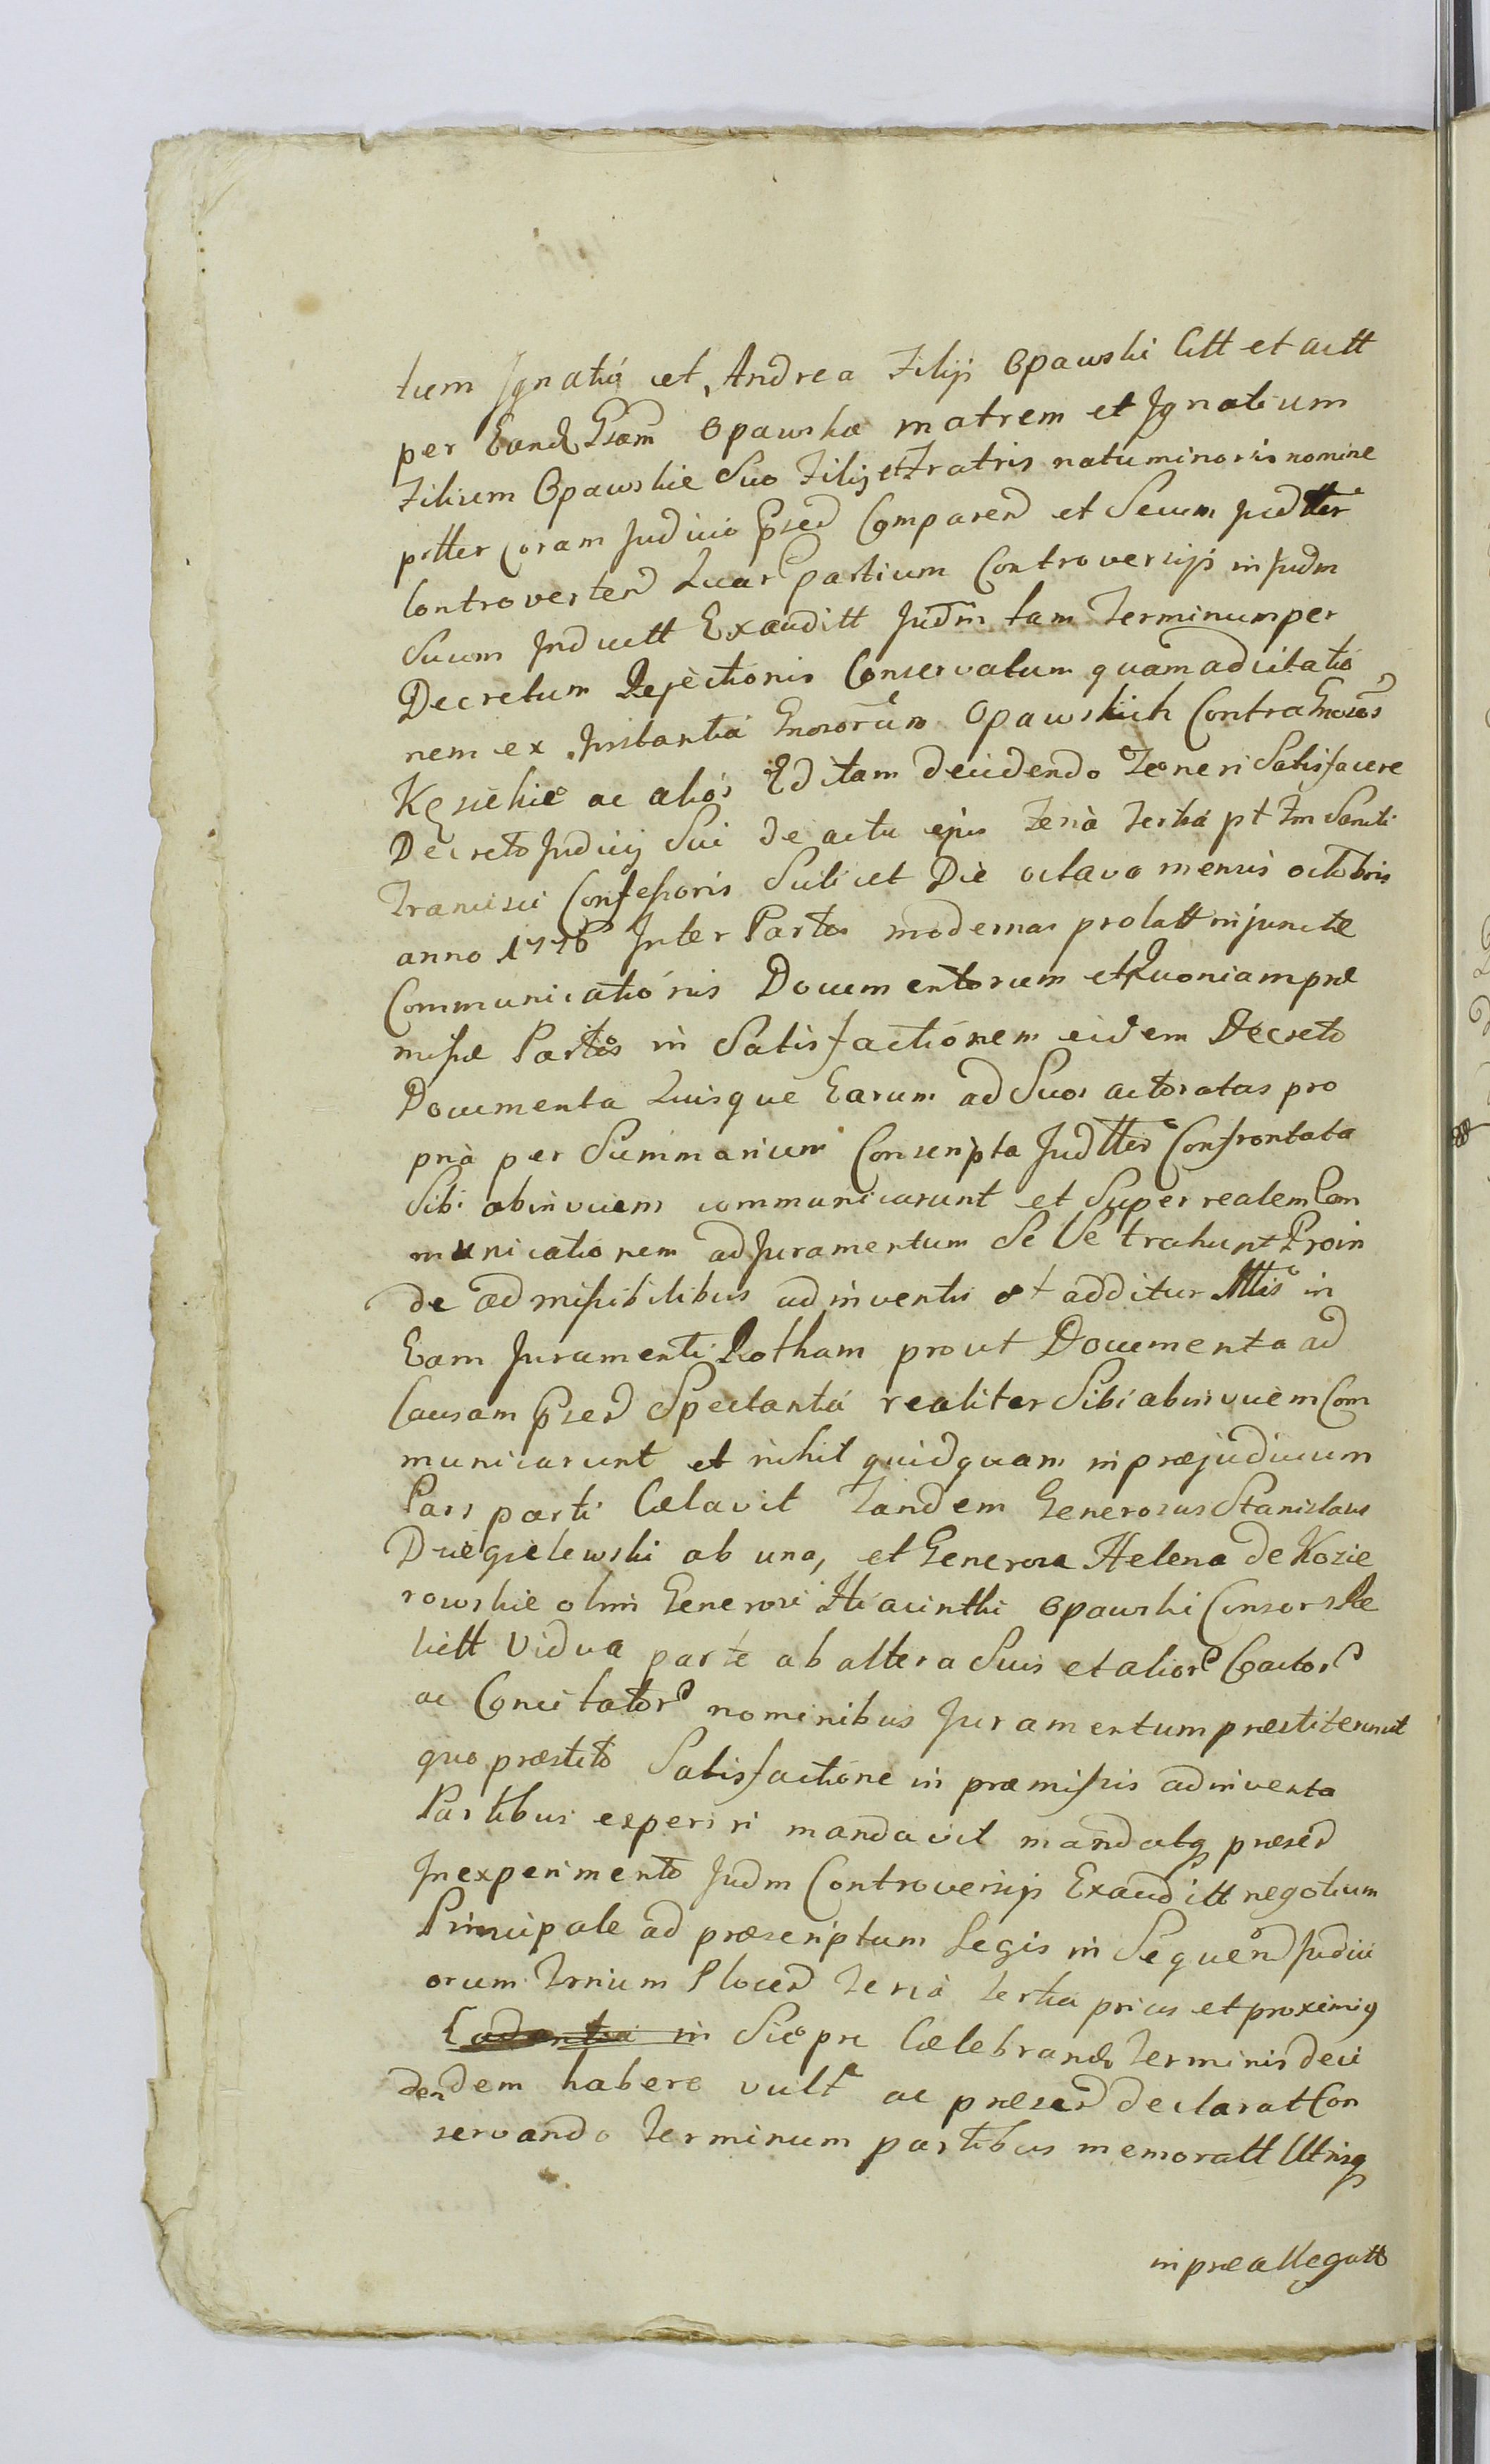 tum Ignatiâ et Andrea Filiji Opawski Citt et actt
per Eand Gsam Opawska matrem et Ignatium
Filium Opawskie Suo Filij et Fratris natu minoris nomine
ptter Coram Judicio Psed Comparen et Secum Judtter
Controverten Quar Partium Controversijs in Judm
Suum Inductt Exauditt Judm tam Terminum per
Decretum Rejectionis Conservatum quam ad citatio
nem ex Instantiâ Gnosorum Opawskich Contra Gnosos
Kęsickie ac alios Editam decidendo Teneri Satisfacere
Decreto Judicij Sui de actu ejus Feria Tertia pt Fm Sancti
Francisci Confessoris Scilicet Die octava mensis octobris
anno 1776 Inter Partes modernas prolatt injunctæ
Communicationis Documentorum et Quoniam præ
missæ Partes in Satisfactionem eidem Decreto
Documenta Quisque Earum ad Suos actoratas pro
pria per Summarium Conscripta Judtter Confrontata
Sibi abinvicem communicarunt et Super realem Com
municationem ad Juramentum Se Se trahunt Proin
de admissibilibus adinventis et additur Illis in
Eam Juramenti Rotham prout Documenta ad
Causam Psed Spectantia realiter Sibi abinvicem Com
municarunt et nihil quidquam in præjudicium
Pars parti Cælavit Tandem Generosus Stanislaus
Dzięgielewski ab una, et Generosa Helena de Kozie
rowskie olim Generosi Hiacinthi Opawski Consors Re
lictt Vidua parte ab altera Suis et alior Coactor
ac Concitator nominibus Juramentum præstiterunt
quo præstito Satisfactione in præmissis adinventa
Partibus experiri mandavit mandatq præsed
In experimento Judm Controversijs Exauditt negotium
Principale ad præscriptum Legis in Sequend Judici
orum Trnium Plocen Feria Tertia prius et proximiq
Cadentia in Sierpc Cælebrandis Terminis deci
dendem habere vult ac præsed declarat Con
servando Terminum partibus memoratt Utrisq
in præallegatt